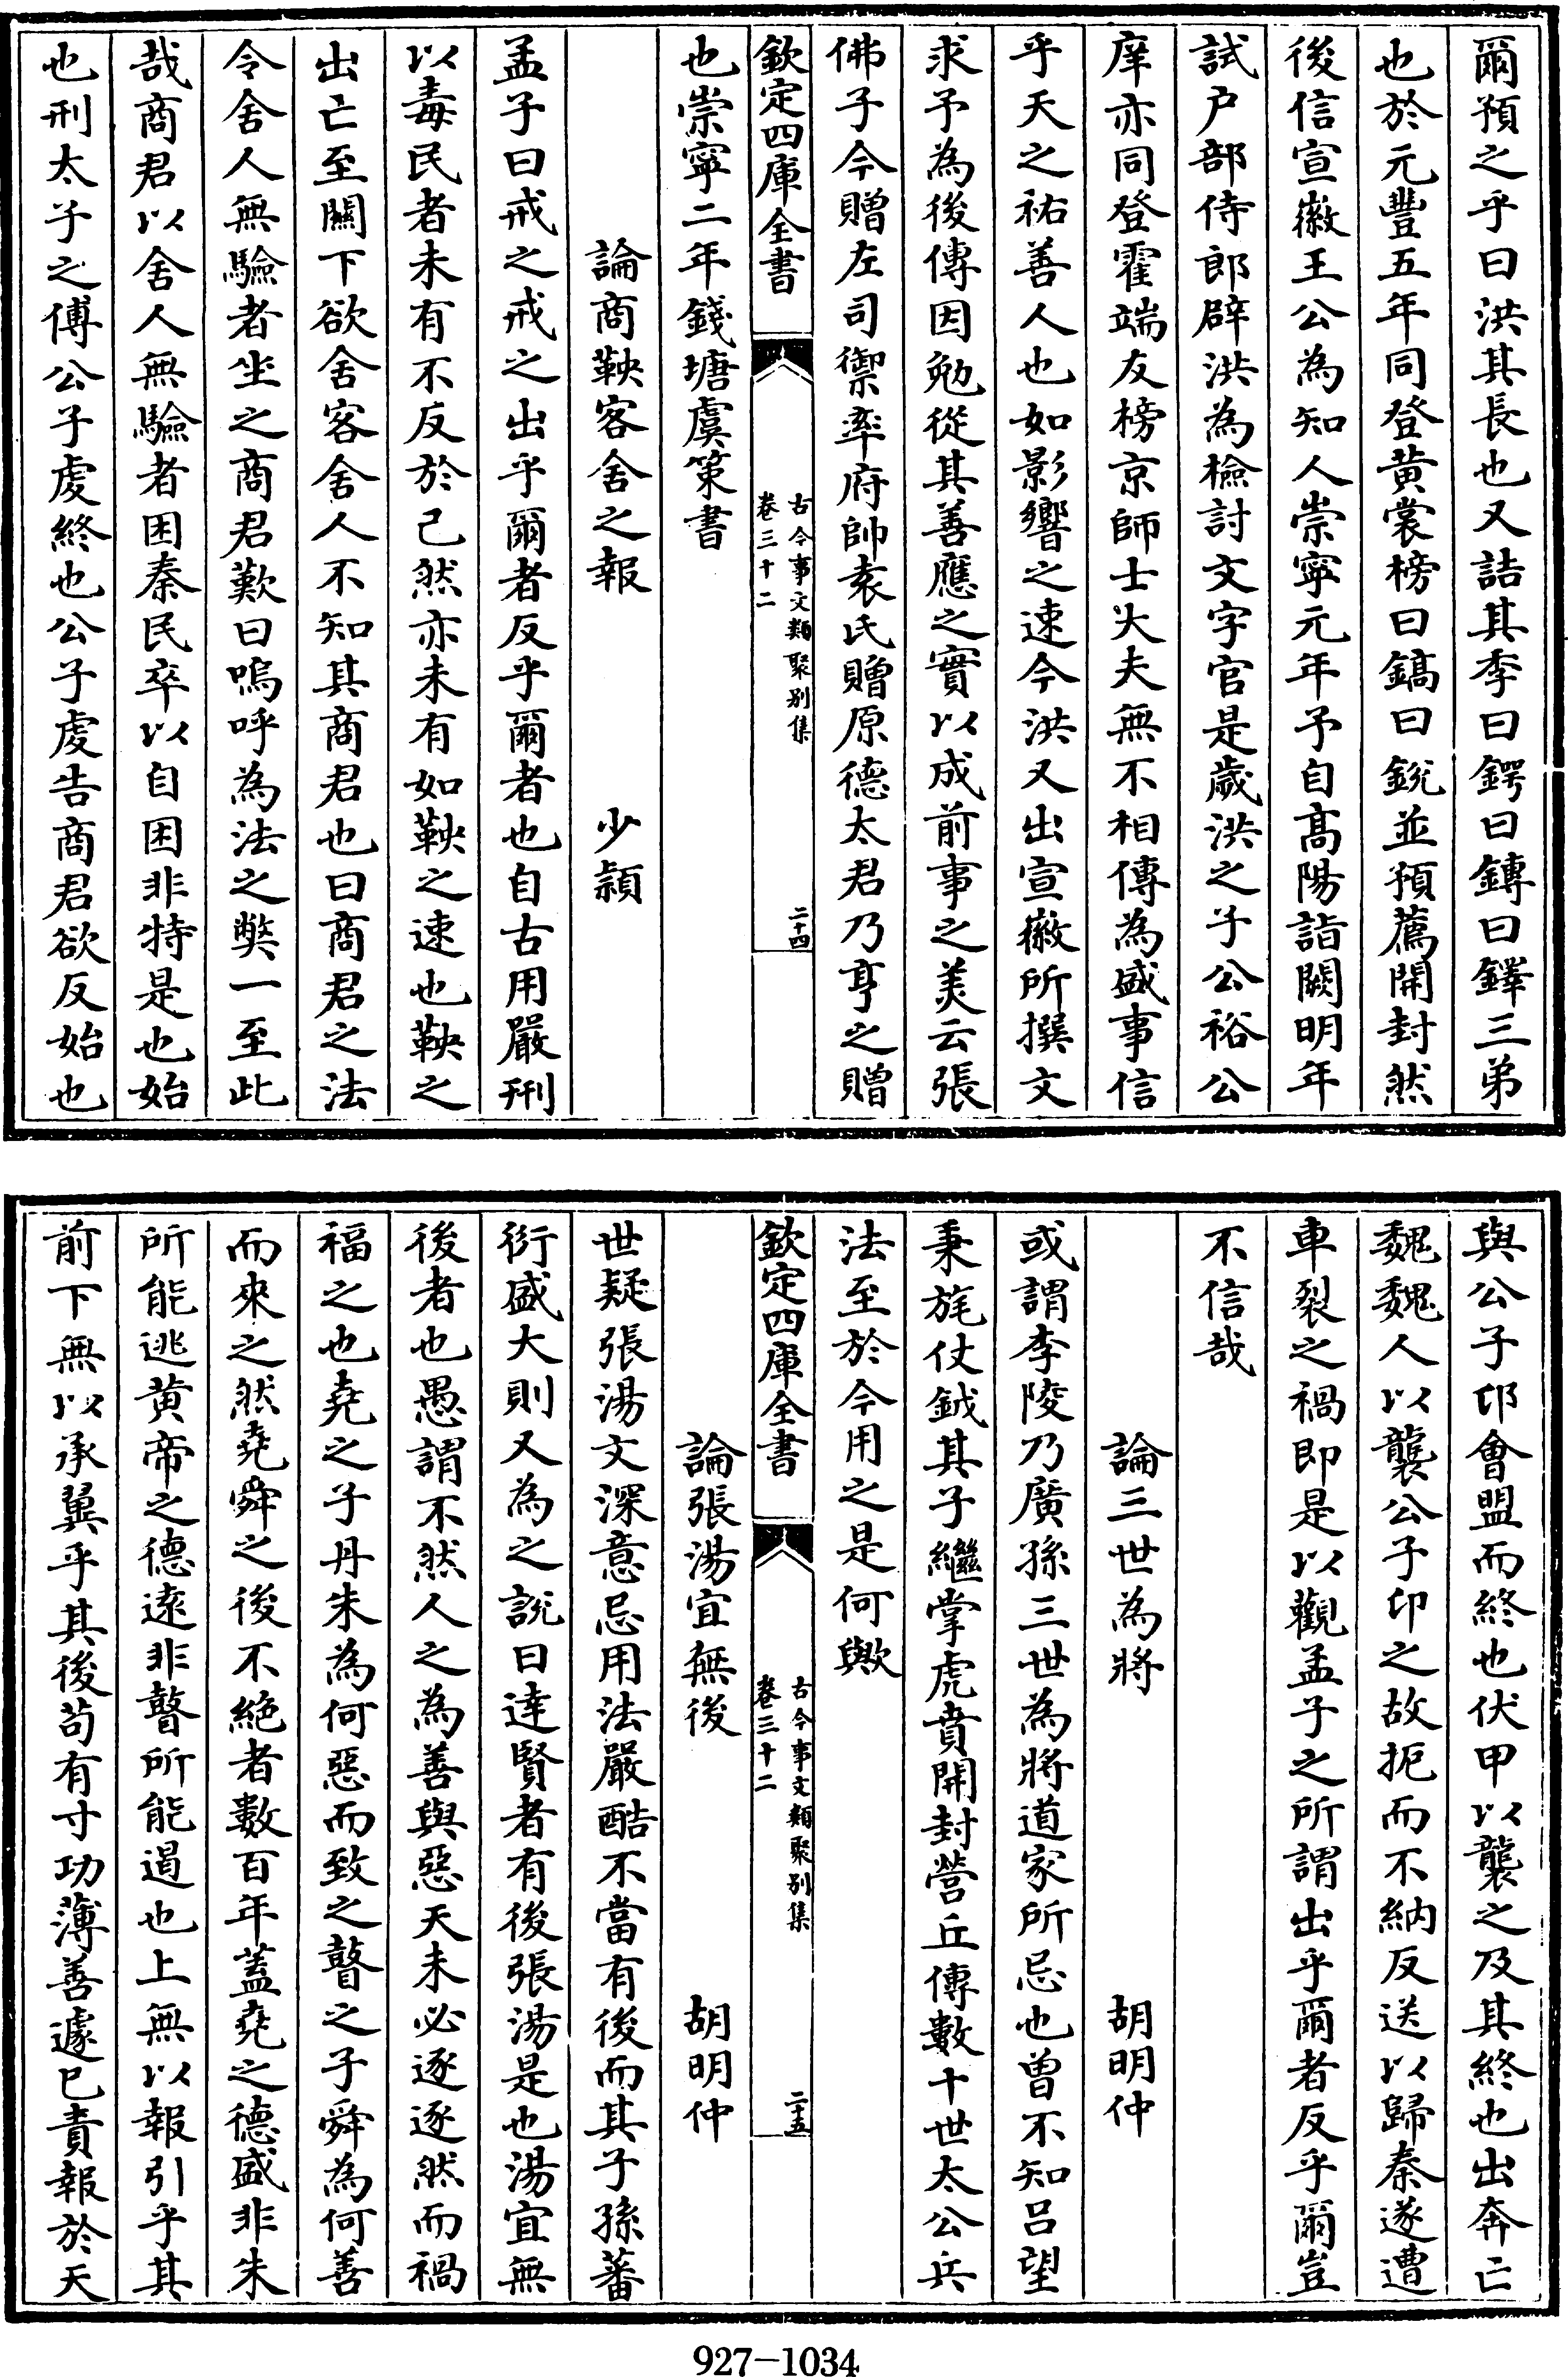 爾預之乎曰洪其長也又詰其季曰鍔曰鏄曰鐸三弟
也於元豐五年同登黄裳榜曰鎬曰鋭並預薦開封然
後信宣徽王公為知人崇寧元年予自髙陽詣闕明年
試户部侍郎辟洪為檢討文字官是歲洪之子公裕公
庠亦同登霍端友榜京師士大夫無不相傳為盛事信
乎天之祐善人也如影響之速今洪又出宣徽所撰文
求予為後傳因勉從其善應之實以成前事之美云張
佛子今贈左司禦率府帥袁氏贈原德太君乃亨之贈
欽定四庫全書
古今事文類聚别集
卷三十二
二十四
也崇寧二年錢塘虞策書
論商鞅客舍之報 少穎
孟子曰戒之戒之出乎爾者反乎爾者也自古用嚴刑
以毒民者未有不反於己然亦未有如鞅之速也鞅之
出亡至關下欲舍客舍人不知其商君也曰商君之法
令舍人無驗者坐之商君歎曰嗚呼為法之弊一至此
哉商君以舍人無驗者困秦民卒以自困非特是也始
也刑太子之傅公子虔終也公子虔告商君欲反始也
與公子卬會盟而終也伏甲以襲之及其終也出奔亡
魏魏人以襲公子卬之故扼而不納反送以歸秦遂遭
車裂之禍即是以觀孟子之所謂出乎爾者反乎爾豈
不信哉
論三世為將 胡明仲
或謂李陵乃廣孫三世為將道家所忌也曾不知吕望
秉旄仗鉞其子繼掌虎賁開封營丘傳數十世太公兵
法至於今用之是何歟
欽定四庫全書
古今事文類聚别集
卷三十二
二十五
論張湯宜無後 胡明仲
世疑張湯文深意忌用法嚴酷不當有後而其子孫蕃
衍盛大則又為之說曰達賢者有後張湯是也湯宜無
後者也愚謂不然人之為善與惡天未必逐逐然而禍
福之也堯之子丹朱為何惡而致之瞽之子舜為何善
而來之然堯舜之後不絶者數百年蓋堯之德盛非朱
所能逃黄帝之德逺非瞽所能遏也上無以報引乎其
前下無以承翼乎其後苟有寸功薄善遽已責報於天
927-1034